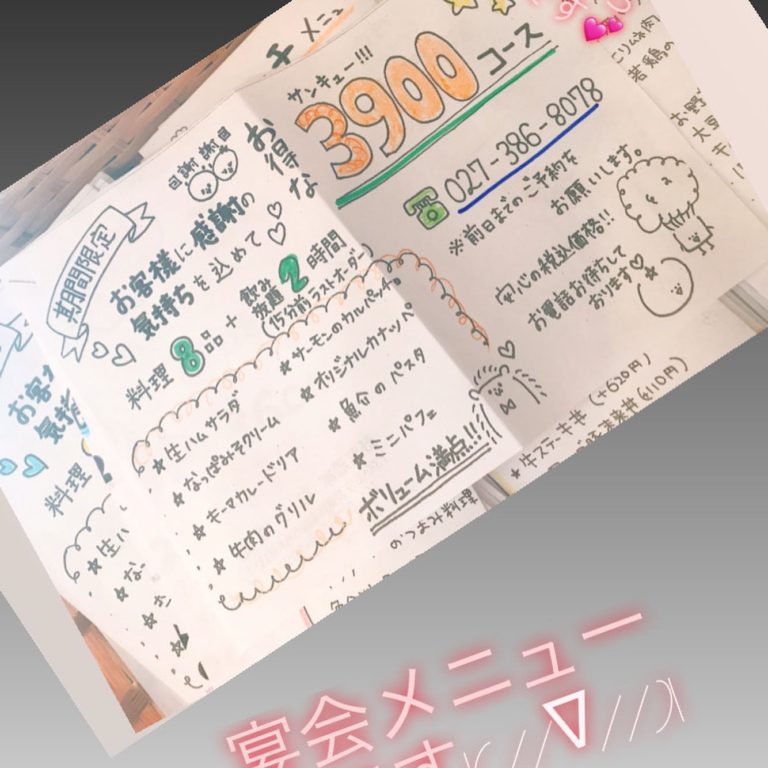 チ メニュ
サンキュー!!!
お得な
3900 コース
☎ 027-386-8078
※前日までのご予約を
お願いします。
安心の税込価格!!
お電話お待ちして
おります♡
感謝 感謝
期間限定
お客様に感謝の
気持ちを込めて♡
料理 8品 + 飲み放題 2時間
(15分前ラストオーダー)
☆生ハムサラダ
☆なっぱみそクリーム
☆キーマカレードリア
☆牛肉のグリル
☆サーモンのカルパッチョ
☆オリジナルカナッペ
☆魚介のパスタ
☆ミニパフェ
ボリューム満点!!!
お客
気持
料理
☆生ハ
☆な
☆キ
若鶏の
お野
大豆
☆牛ステーキ丼 (+620円)
おつまみ料理
宴会メニュー
です(//∇//)